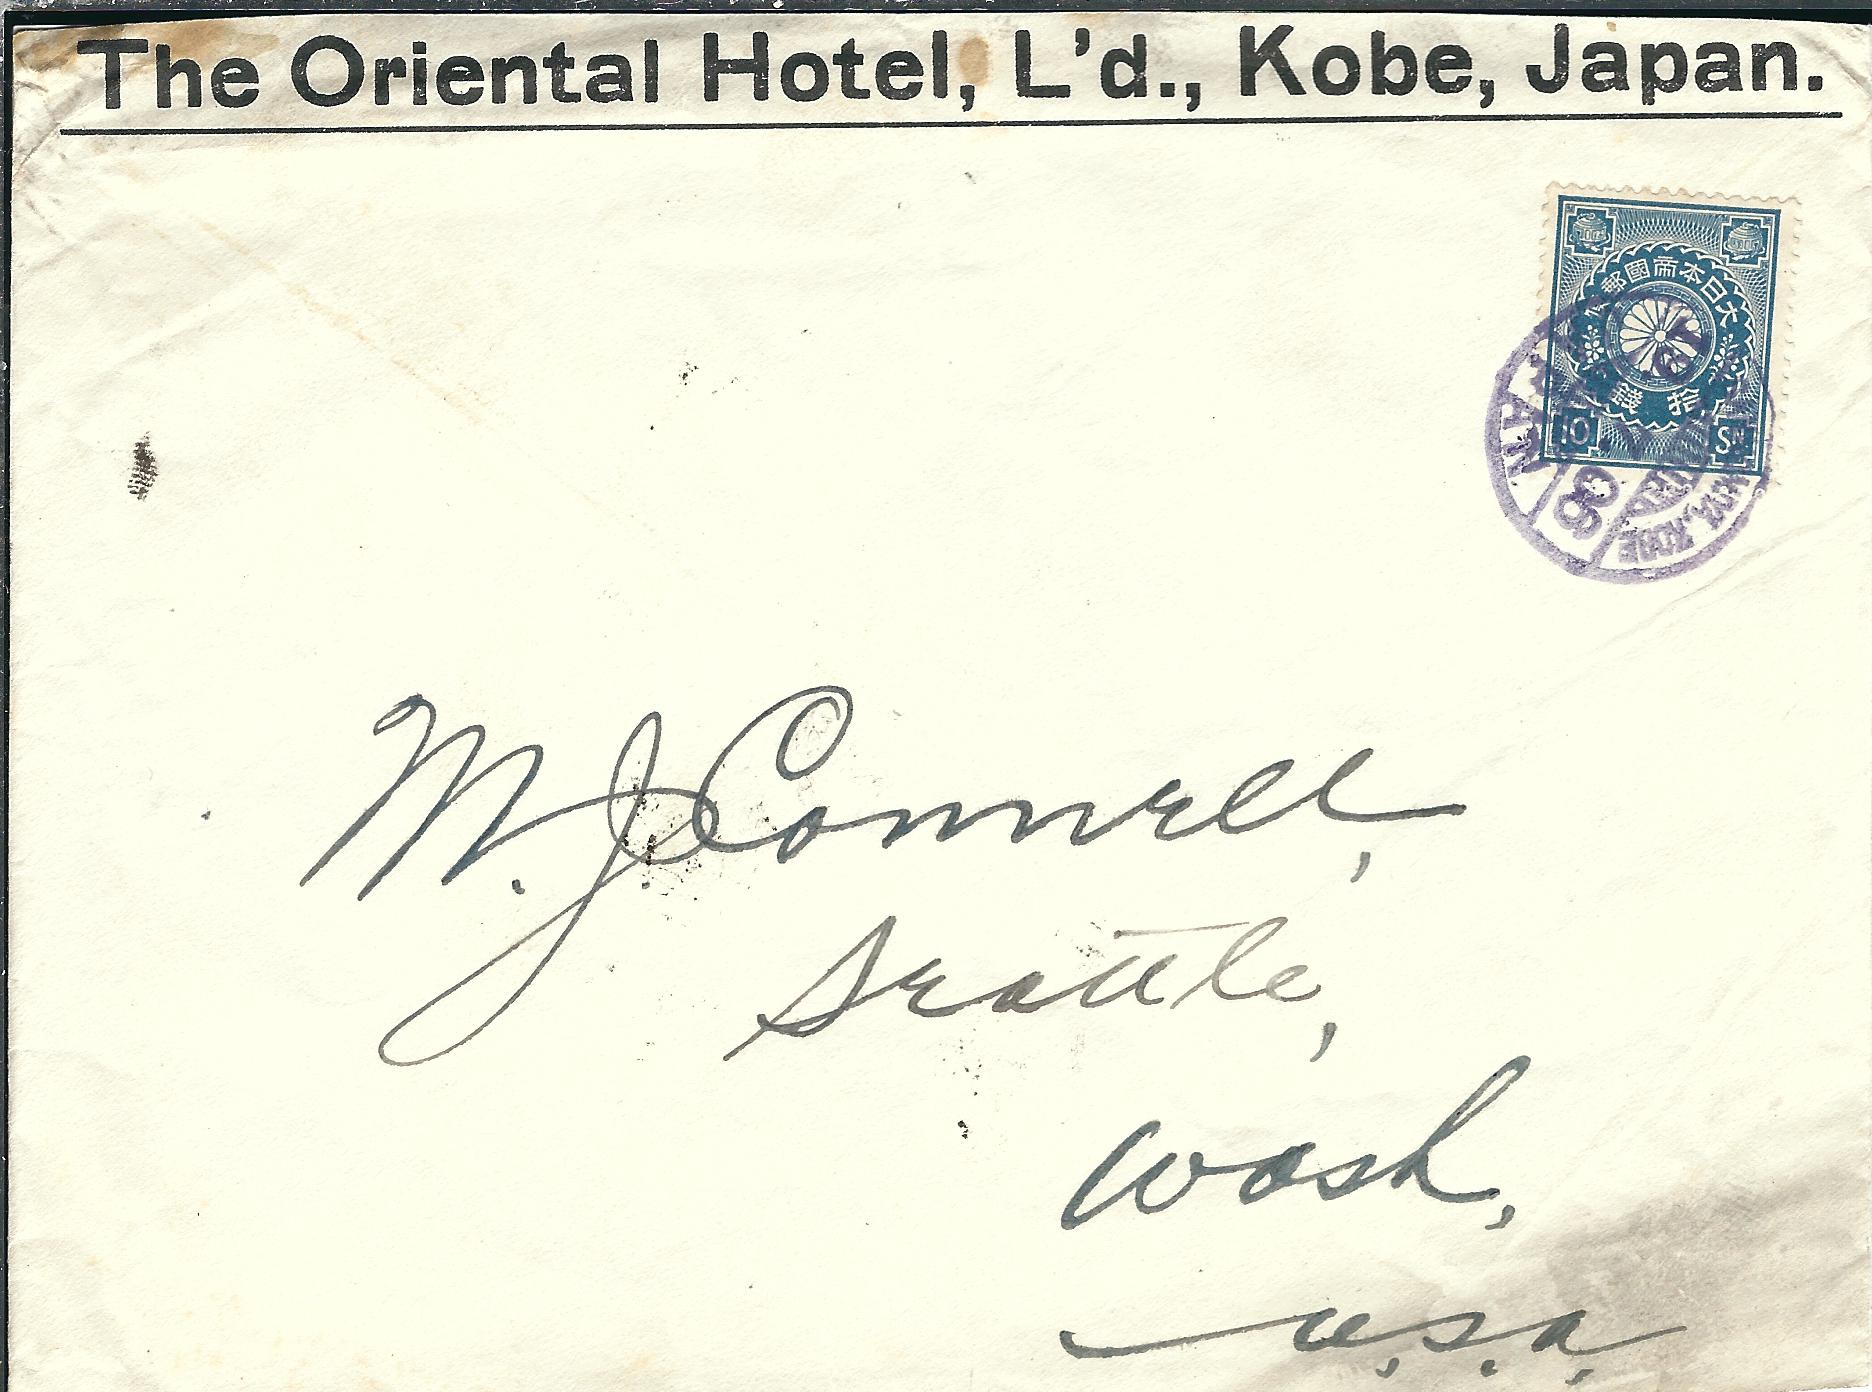 The Oriental Hotel, L'd., Kobe, Japan.
大日本帝國郵便
拾錢
10 SN
19
06
JAPAN
KOBE
M. J. Connell,
Seattle,
Wash,
U.S.A,